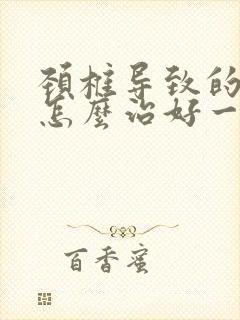 颈椎导致的
怎麼治好一
百香蜜